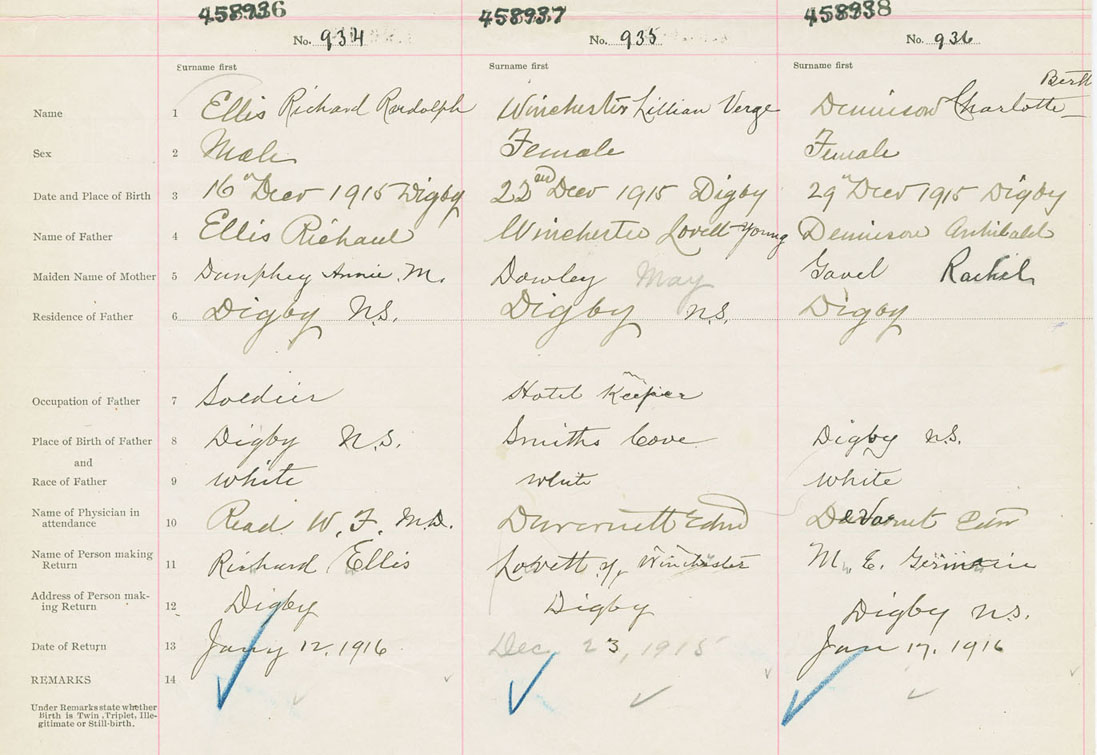 458936 458937 458938
No. 934 No. 935 No. 936
Surname first Surname first Surname first
Name 1 Ellis Richard Rudolph Winchester Lillian Verge Dennison Charlotte Berth
Sex 2 Male Female Female
Date and Place of Birth 3 16" Decr 1915 Digby 1915 Digby 29" Decr 1915 Digby
Name of Father 4 Ellis Richard Winchester Lovett Young Dennison Archibald
Maiden Name of Mother 5 Dunphey Annie M. Dowley May Gavel Rachel
Residence of Father 6 Digby N.S. Digby N.S. Digby
Occupation of Father 7 Soldier Hotel Keeper
Place of Birth of Father 8 Digby N.S. Smiths Cove Digby N.S.
and
Race of Father 9 White White White
Name of Physician in
attendance 10 Read W. F. M.D.
Name of Person making
Return 11 Richard Ellis Lovett Y. Winchester M. E. Germain
Address of Person mak-
ing Return 12 Digby Digby Digby N.S.
Date of Return 13 Jany 12, 1916 Dec 23, 1915 Jan 17, 1916
REMARKS 14
Under Remarks state whether
Birth is Twin, Triplet, Ille-
gitimate or Still-birth.